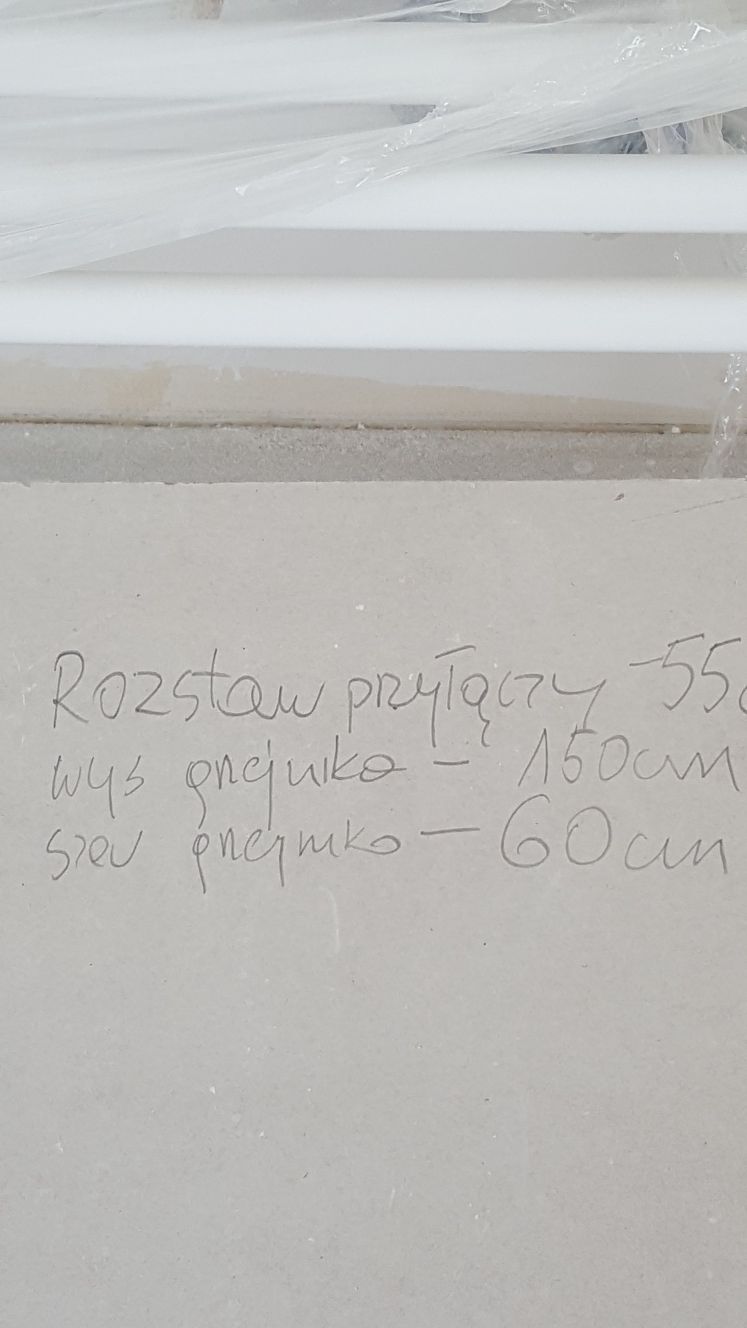 Rozstaw przyłączy - 55c
wys grzejnika - 150cm
szer grzejnika - 60cm